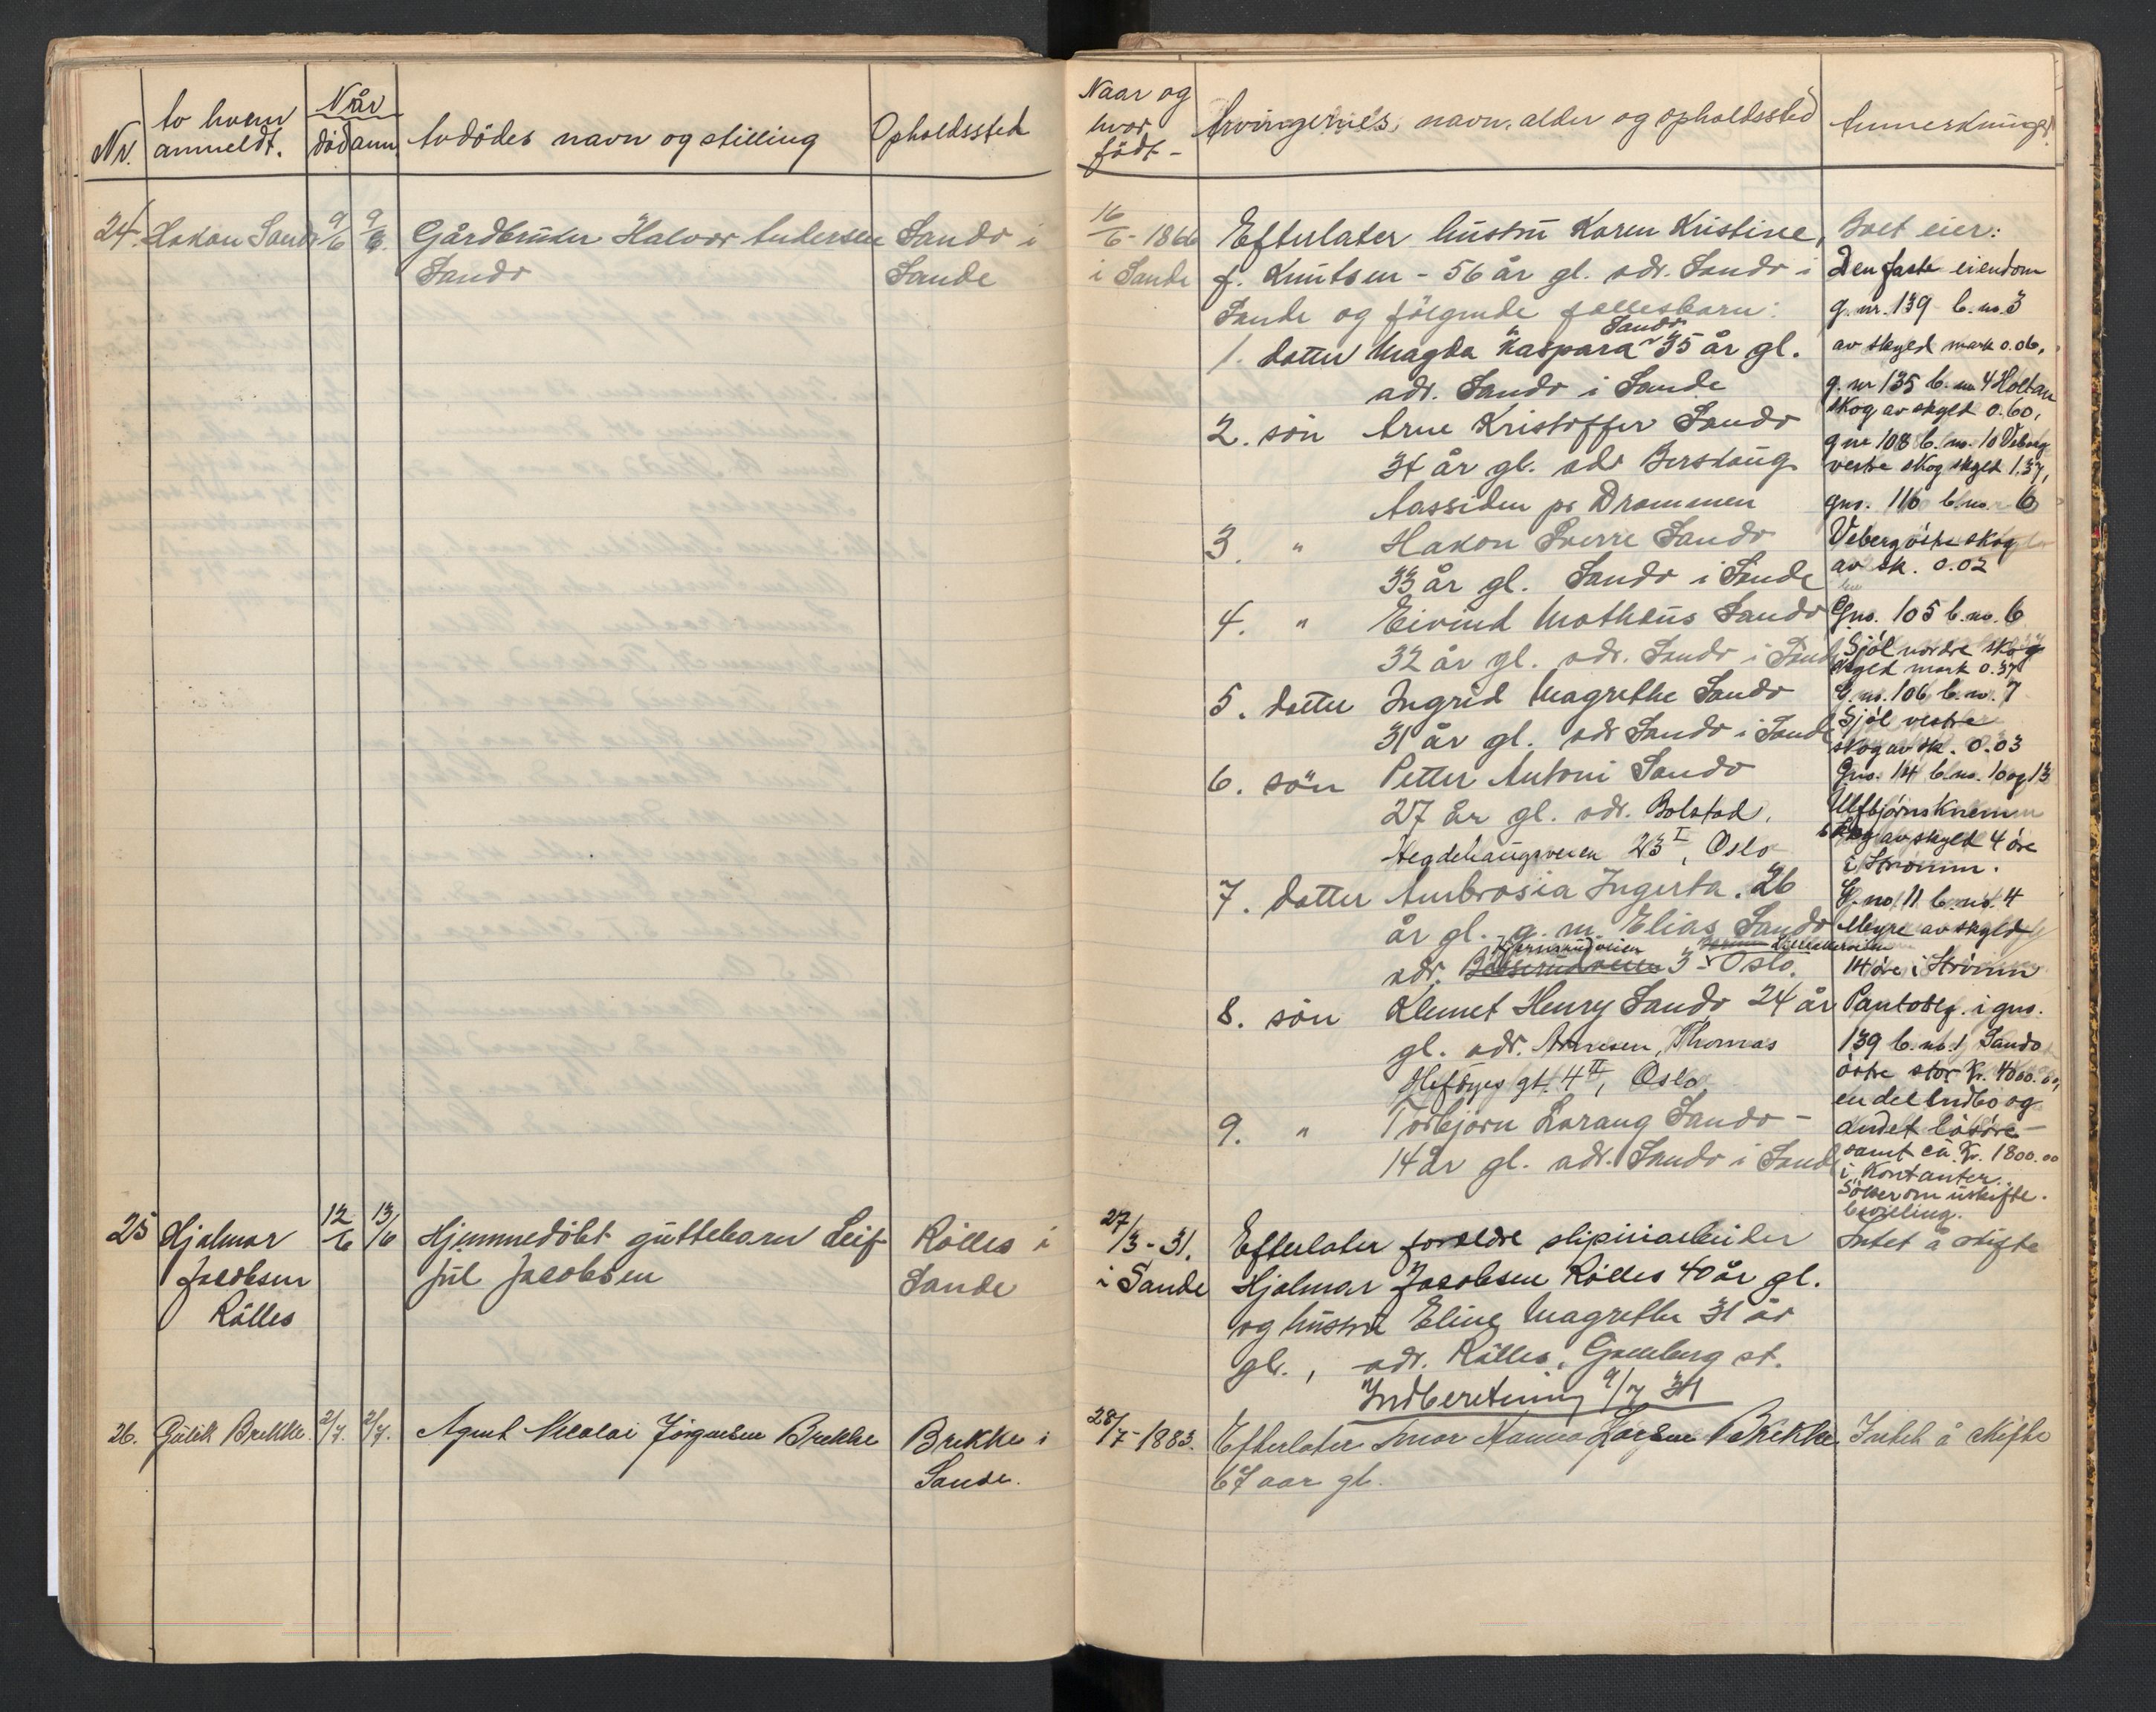 Nr.
Av hvem anmeldt.
Når
död anm.
Avdödes navn og stilling
Opholdssted
24. Hakon Sando 9/6 9/6. Gårdbruker Halvor Andersen Sando i
Sando Sande
25 Hjalmar 12/6 13/6 Hjemmedöbt guttebarn Leif Rölles i
Jacobsen Jul Jacobsen Sande
Rölles
26. Gulik Brekke. 2/7. 2/7. Agent Nicolai Jörgensen Brekke Brekke i
Sande.
Naar og
hvor
födt -
Arvingernes navn, alder og opholdssted
Anmerkninger
16/6 - 1866 Efterlater hustru Karen Kristine,
i Sande f. Knutsen - 56 år gl. adr. Sando i
Sande og fölgende fellesbarn:
Sando
1. datter Magda Kaspara 35 år gl.
adr. Sando i Sande
2. sön Arne Kristoffer Sando
34 år gl. adr. Berskaug
Aassiden pr Drammen
3. " Hakon Sverre Sando
33 år gl. Sando i Sande
4. " Eivind Matheus Sando
32 år gl. adr. Sando i Sande
5. datter Ingrid Magrethe Sando
31 år gl. adr Sando i Sande
6. sön Petter Antoni Sando
27 år gl. adr. Bolstad,
Hegdehaugsveien 23 I, Oslo
7. datter Ambrosia Ingerta. 26
år gl. g. m. Elias Sando
adr. 3 - Oslo.
8. sön Klemet Henry Sando 24 år
gl. adr. Arnesen, Thomas
Heftyes gt. 4 II, Oslo
9. " Torbjörn Larang Sando -
14 år gl. adr. Sando i Sande
Boet eier:
Den faste eiendom
g. nr. 139 b. no. 3
av skyld mark 0.06,
g. nr 135 b. no 4 Holtan
skog av skyld 0.60,
g nr 108 b. no. 10 Veberg
vestre skog skyld 1.37,
gno. 110 b. no. 6
Veberg östre skog
av sk. 0.02
Gno. 105 b. no. 6
Sjöl nordre skog
skyld mark 0.37
G. no. 106 b. no. 7
Sjöl vestre
skog av sk. 0.03
Gno. 14 b. no. 10 og 13
Ulfbjørnsknem
skog av skyld 4 öre
i Strömm.
G. no. 11 b. no. 4
Meyre av skyld
14 öre i Strömm
Pantobl. i gno.
139 b. no. 1 Sando
östre stor Kr. 4000.00,
en del Indbo og
andet lösöre -
samt ca. Kr. 1800.00
i Kontanter.
Söker om uskifte-
bevilling.
27/3 - 31. Efterlater foreldre sliperiarbeider Intet å skifte
i Sande Hjalmar Jacobsen Rölles 40 år gl.
og hustru Eline Magrethe 31 år
gl., adr. Rölles, Galleberg st.
Indberetning 9/7 31
28/7 - 1883. Efterlater Larsen Brekke Intet å skifte
67 aar gl.